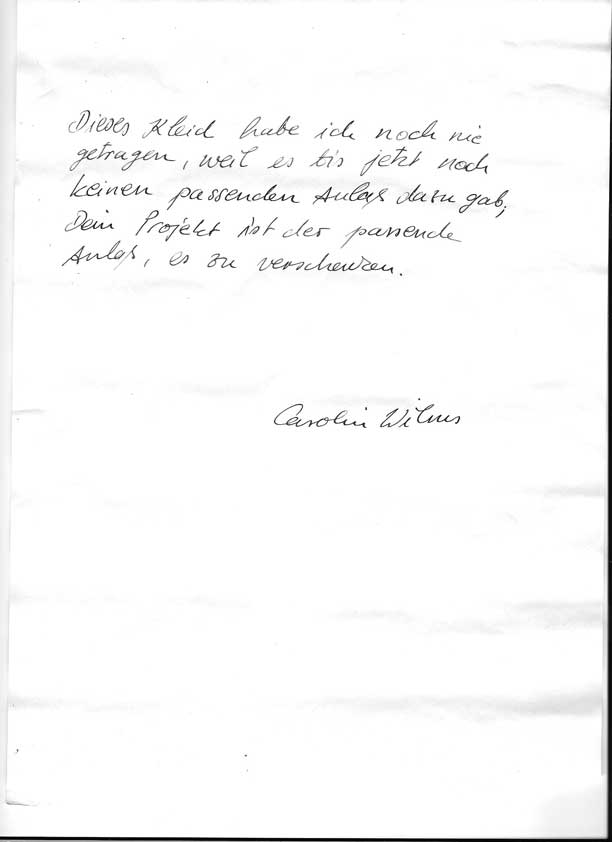 Dieses Kleid habe ich noch nie
getragen, weil es bis jetzt noch
keinen passenden Anlaß dazu gab,
Dein Projekt ist der passende
Anlaß, es zu verschenken.
Carolin Wilms